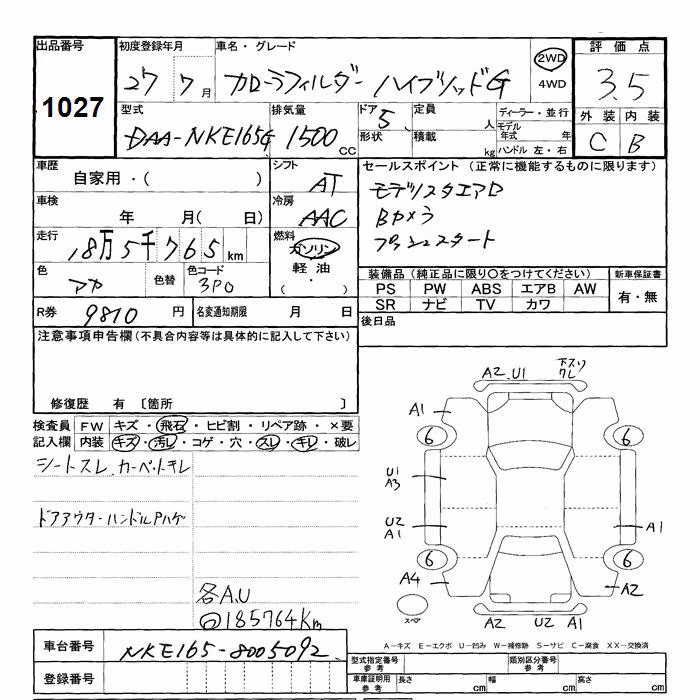 出品番号 初度登録年月 車名・グレード 評価点
1027 27 7月 カローラフィルダー ハイブリッドG 2WD 4WD 3.5
型式 排気量 ドア 5 定員 人 ディーラー・並行 外装 内装
DAA-NKE165G 1500 CC 形状 積載 kg モデル年式 年 ハンドル 左・右 C B
車歴 シフト セールスポイント (正常に機能するものに限ります)
自家用・( ) AT モデリスタエアロ
車検 冷房 Bカメラ
年 月( 日) AAC プッシュスタート
走行 燃料
18万5千765km ガソリン
軽油
( ・ )
色 色替 色コード 装備品(純正品に限り〇をつけてください) 新車保証書
アカ 3P0 PS PW ABS エアB AW 有・無
SR ナビ TV カワ
R券 9810 円 名変通知期限 月 日 後日品
注意事項申告欄(不具合内容等は具体的に記入して下さい)
修復歴 有 〔箇所 〕
検査員 FW キズ・飛石・ヒビ割・リペア跡・×要
記入欄 内装 キズ・汚レ・コゲ・穴・スレ・キレ・破レ
シートスレ カーペットキレ
ドアアウターハンドルPハゲ
各A.U
185764Km
A2 U1 下スリ
A1
6 6
U1
A3
U2
A1 A1
6 6
A4 A2
スペア A2 U2 A1
A-キズ E-エクボ U-凹み W-補修跡 S-サビ C-腐食 XX-交換済
車台番号 NKE165-8005092 型式指定番号 参考 類別区分番号 参考
登録番号 車庫証明用 参考 長さ cm 幅 cm 高さ cm